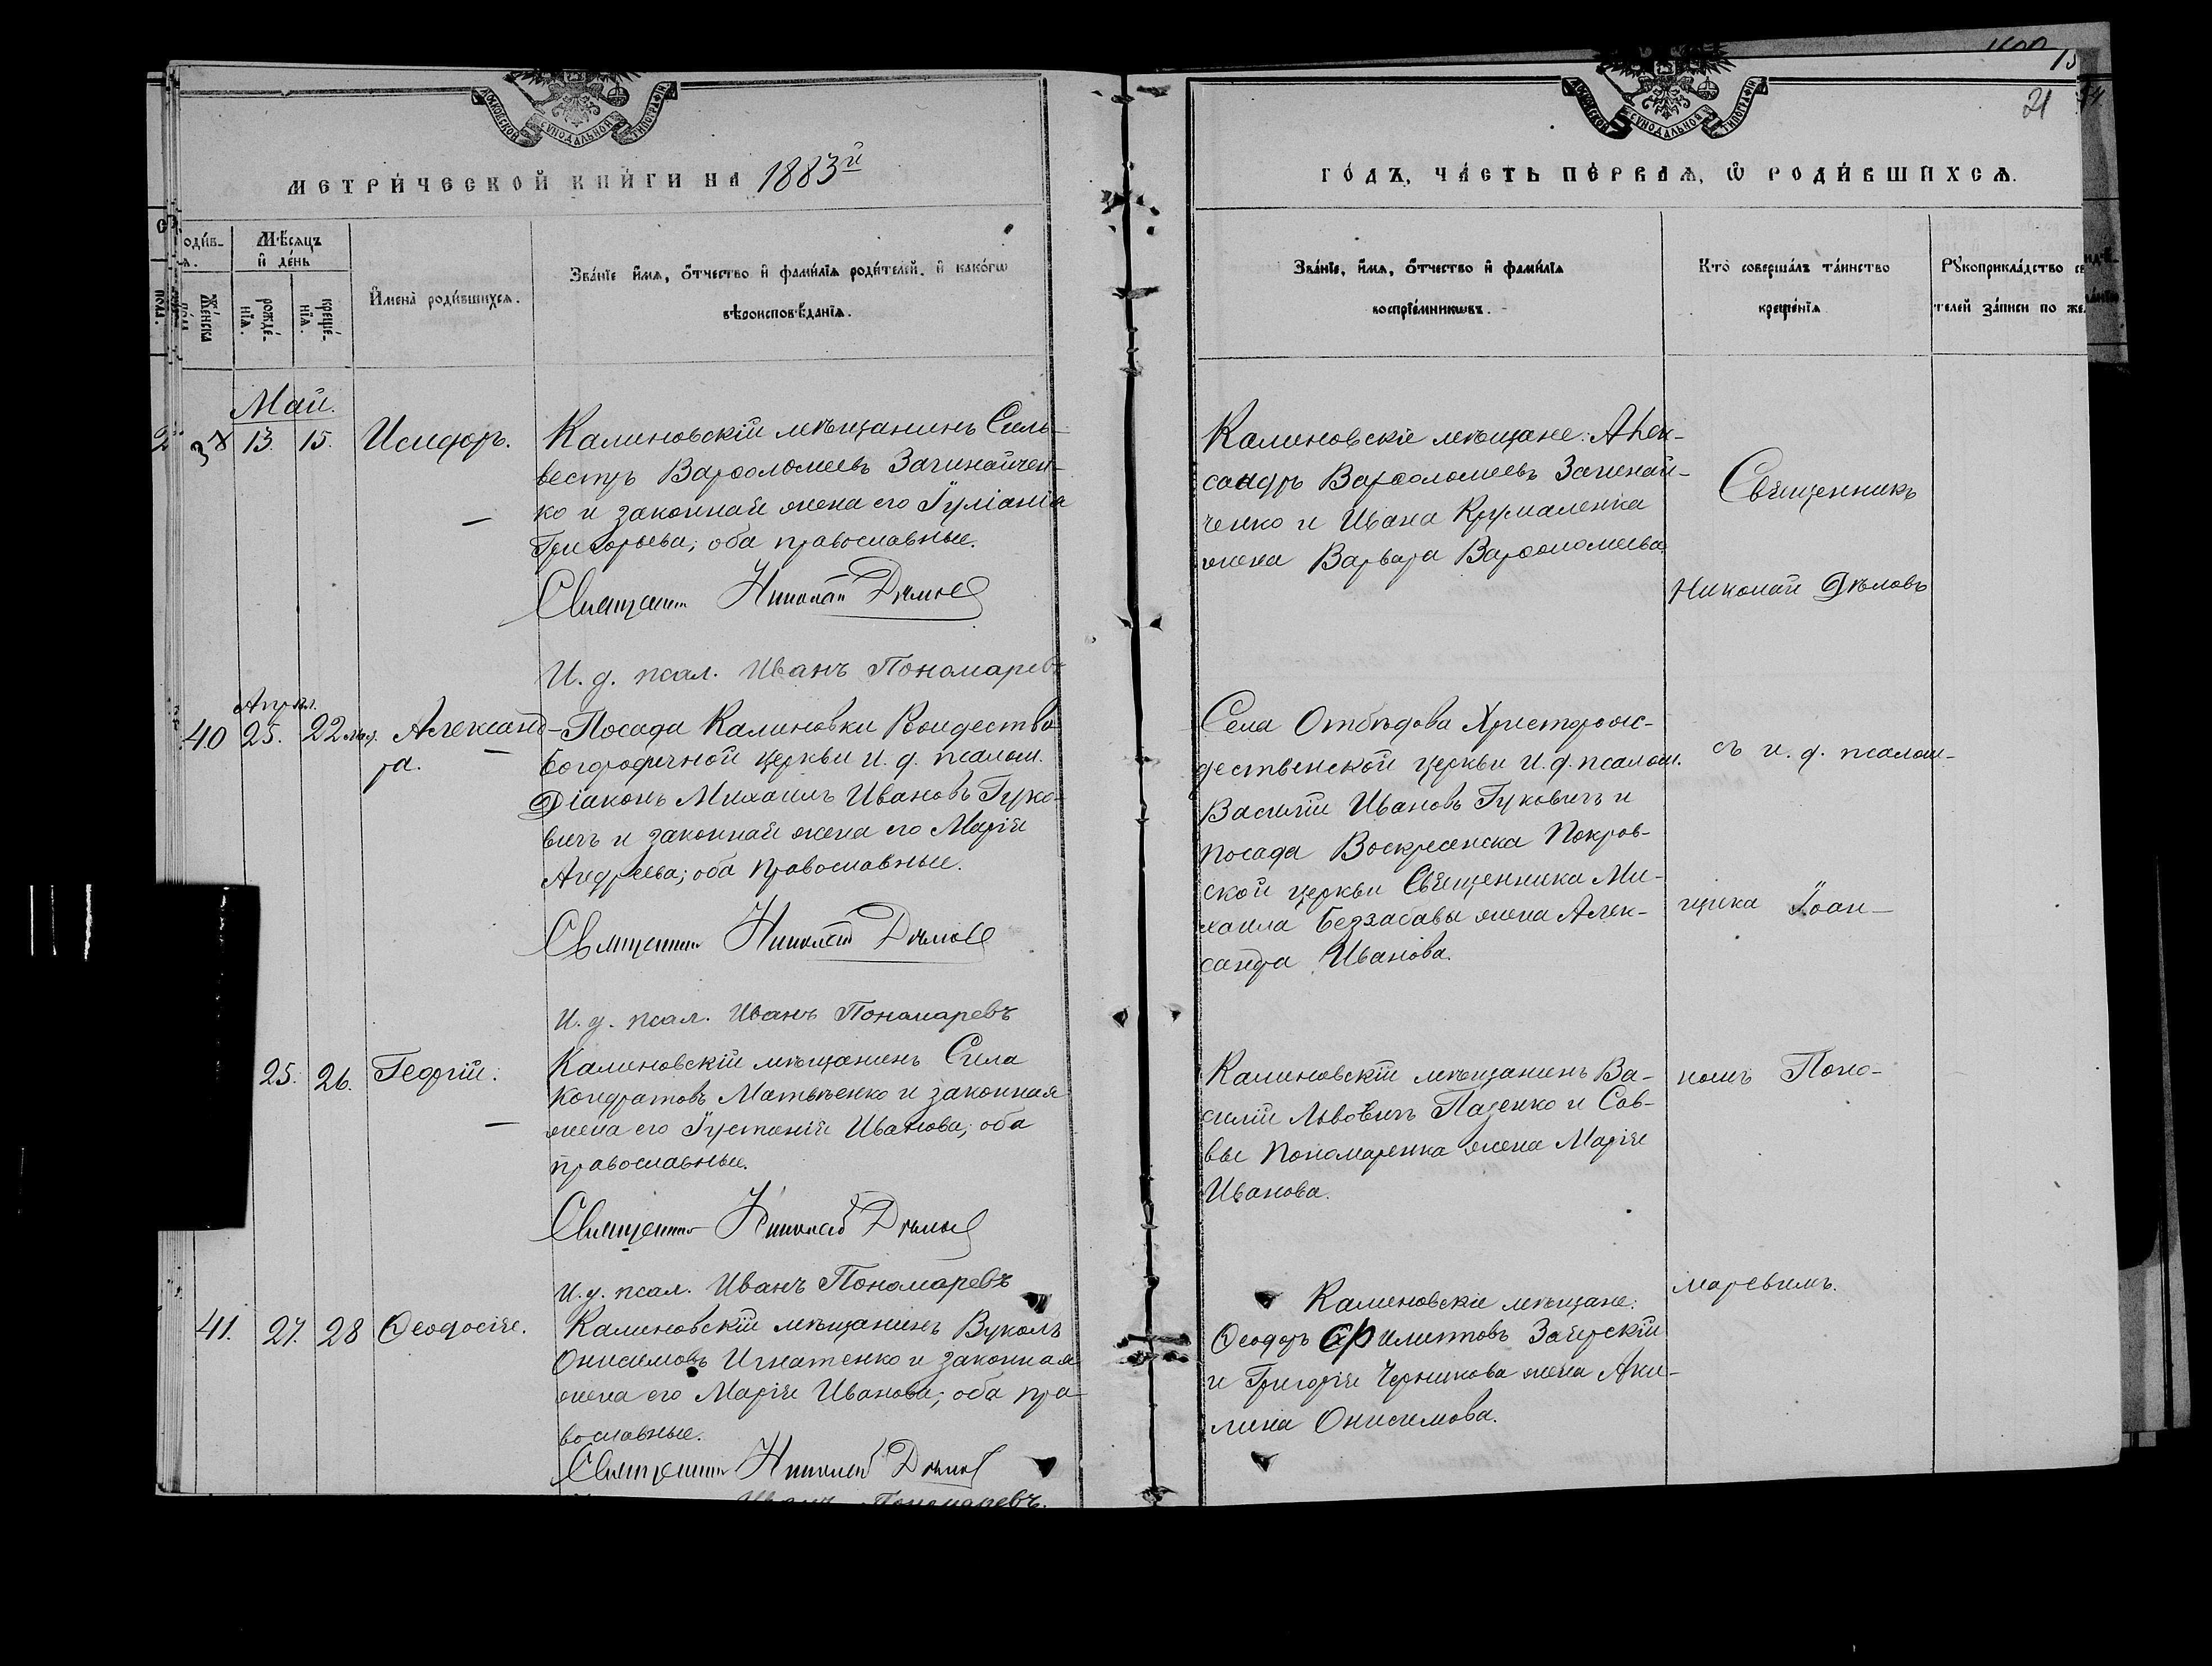 МОСКОВСКОЙ СѴНОДАЛЬНОЙ ТИПОГРАФІИ
МЕТРИ́ЧЕСКОЙ КНИ́ГИ НА 1883й
оди́в-
Мѣ́сяцъ
и де́нь
Же́нска
рожде́-
нїѧ.
креще́-
нїѧ.
И҆мена̀ роди́вшихсѧ.
Зва́нїе и҆́мѧ, ѻ҆́тчество и҆ фами́лїѧ роди́телей. и҆ како́гѡ
вѣроисповѣ́данїѧ.
Май.
13. 15. Исидоръ.
Калиновскій мѣщанинъ Силь-
вестръ Варѳоломеевъ Зачинайчен-
ко и законная жена его Іуліанія
Григорьева; оба православные.
Священникъ Николай Дѣловъ
И. д. псал. Иванъ Пономаревъ
Апрѣл.
40 25. 22 мая. Александ-
ра.
Посада Калиновки Рождество
Богородичной церкви и. д. псалом.
Діаконъ Михаилъ Ивановъ Гуко-
вичъ и законная жена его Марія
Андреева; оба православные.
Священникъ Николай Дѣловъ
И. д. псал. Иванъ Пономаревъ
25. 26. Георгій.
Калиновскій мѣщанинъ Сила
Кондратовъ Матвѣенко и законная
жена его Іустинія Иванова; оба
православные.
Священникъ Николай Дѣловъ
И. д. псал. Иванъ Пономаревъ
41. 27. 28 Ѳеодосія.
Калиновскій мѣщанинъ Вуколъ
Онисимовъ Игнатенко и законная
жена его Марія Иванова; оба пра
вославные.
Священникъ Николай Дѣловъ
Иванъ Пономаревъ.
МОСКОВСКОЙ СѴНОДАЛЬНОЙ ТИПОГРАФІИ
15
21
ГО́ДЪ, ЧА́СТЬ ПЕ́РВАѦ, Ѡ РОДИ́ВШИХСѦ.
Зва́нїе, и҆́мѧ, ѻ҆́тчество и҆ фами́лїѧ
воспрїе́мникѡвъ.
Кто̀ соверша́лъ та́инство
креще́нїѧ
Рꙋкоприкла́дство св
телей за́писи по же
Калиновскіе мѣщане: Алек-
сандръ Варѳоломеевъ Зачинай-
ченко и Ивана Крумаленка
жена Варвара Варѳоломеева
Села Отбѣдова Христорож-
дественской церкви и. д. псалом.
Василій Ивановъ Гуковичъ и
посада Воскресенска Покров-
ской церкви Священника Ми-
хаила Беззабавы жена Алек-
сандра Иванова.
Калиновскій мѣщанинъ Ва-
силій Львовичъ Пазенко и Сав-
вы Пономаренка жена Марія
Иванова.
Калиновскіе мѣщане:
Ѳеодоръ Филиповъ Заѣрскій
и Григорія Черникова жена Аки-
лина Онисимова.
Священникъ
Николай Дѣловъ
съ и. д. псалом-
щика Іоан-
номъ Поно-
маревимъ.